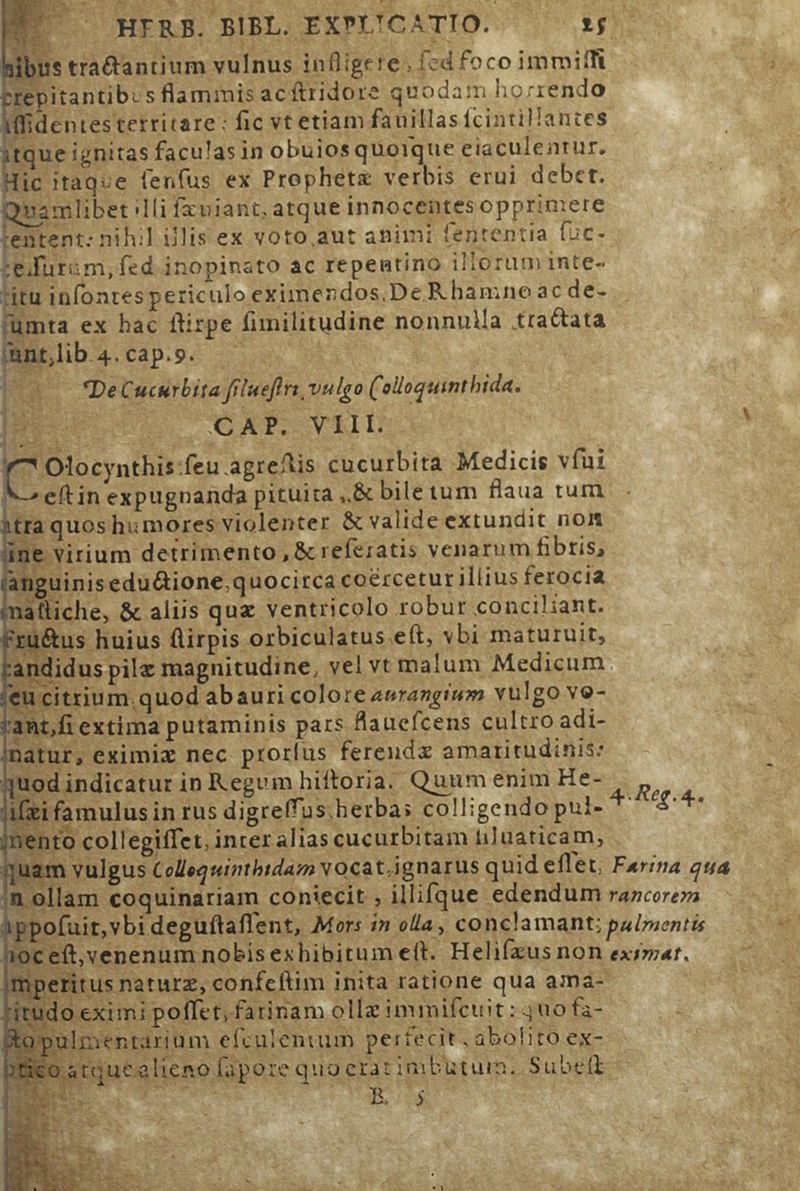 HERB. BIBL. EXPLICATIO. 25
nibus tractantium vulnus infligere, sed foco immissi
crepitantibus flammis ac stridore quodam horrendo
assidentes territare: sic vt etiam fauillas scintillantes
atque ignitas faculas in obuios quosque eiaculentur.
Hic itaque sensus ex Prophetæ verbis erui debet.
Quamlibet illi sæuiant, atque innocentes opprimere
tentent: nihil illis ex voto aut animi sententia suc-
cessurum, sed inopinato ac repentino illorum inte-
ritu insontes periculo eximendos. De Rhamno ac de-
sumta ex hac stirpe similitudine nonnulla tractata
sunt, lib 4. cap. 9.
De Cucurbita siluestri, vulgo Colloquinthida.
CAP. VIII.
COlocynthis seu agrestis cucurbita Medicis vsui
est in expugnanda pituita, & bile tum flaua tum
atra quos humores violenter & valide extundit non
sine virium detrimento, & reseratis venarum fibris,
sanguinis eductione, quocirca coërcetur illius ferocia
mastiche, & aliis quæ ventricolo robur conciliant.
Fructus huius stirpis orbiculatus est, vbi maturuit,
candidus pilæ magnitudine, vel vt malum Medicum
seu citrium quod ab auri colore aurangium vulgo vo-
cant, si extima putaminis pars flauescens cultro adi-
matur, eximiæ nec prorsus ferendæ amaritudinis:
quod indicatur in Regum historia. Quum enim He-
lisæi famulus in rus digressus herbas colligendo pul- 4. Reg. 4.
mento collegisset, inter alias cucurbitam siluaticam,
quam vulgus Colloquinthidam vocat, ignarus quid esset, Farina qua
in ollam coquinariam coniecit, illisque edendum rancorem
apposuit, vbi degustassent, Mors in olla, conclamant; pulmentis
hoc est, venenum nobis exhibitum est. Helisæus non eximat.
imperitus naturæ, confestim inita ratione qua ama-
ritudo eximi posset, farinam ollæ immiscuit: quo fa-
cto pulmentarium esculentum perfecit, abolito ex-
otico atque alieno sapore quo erat imbutum. Subest
B 5